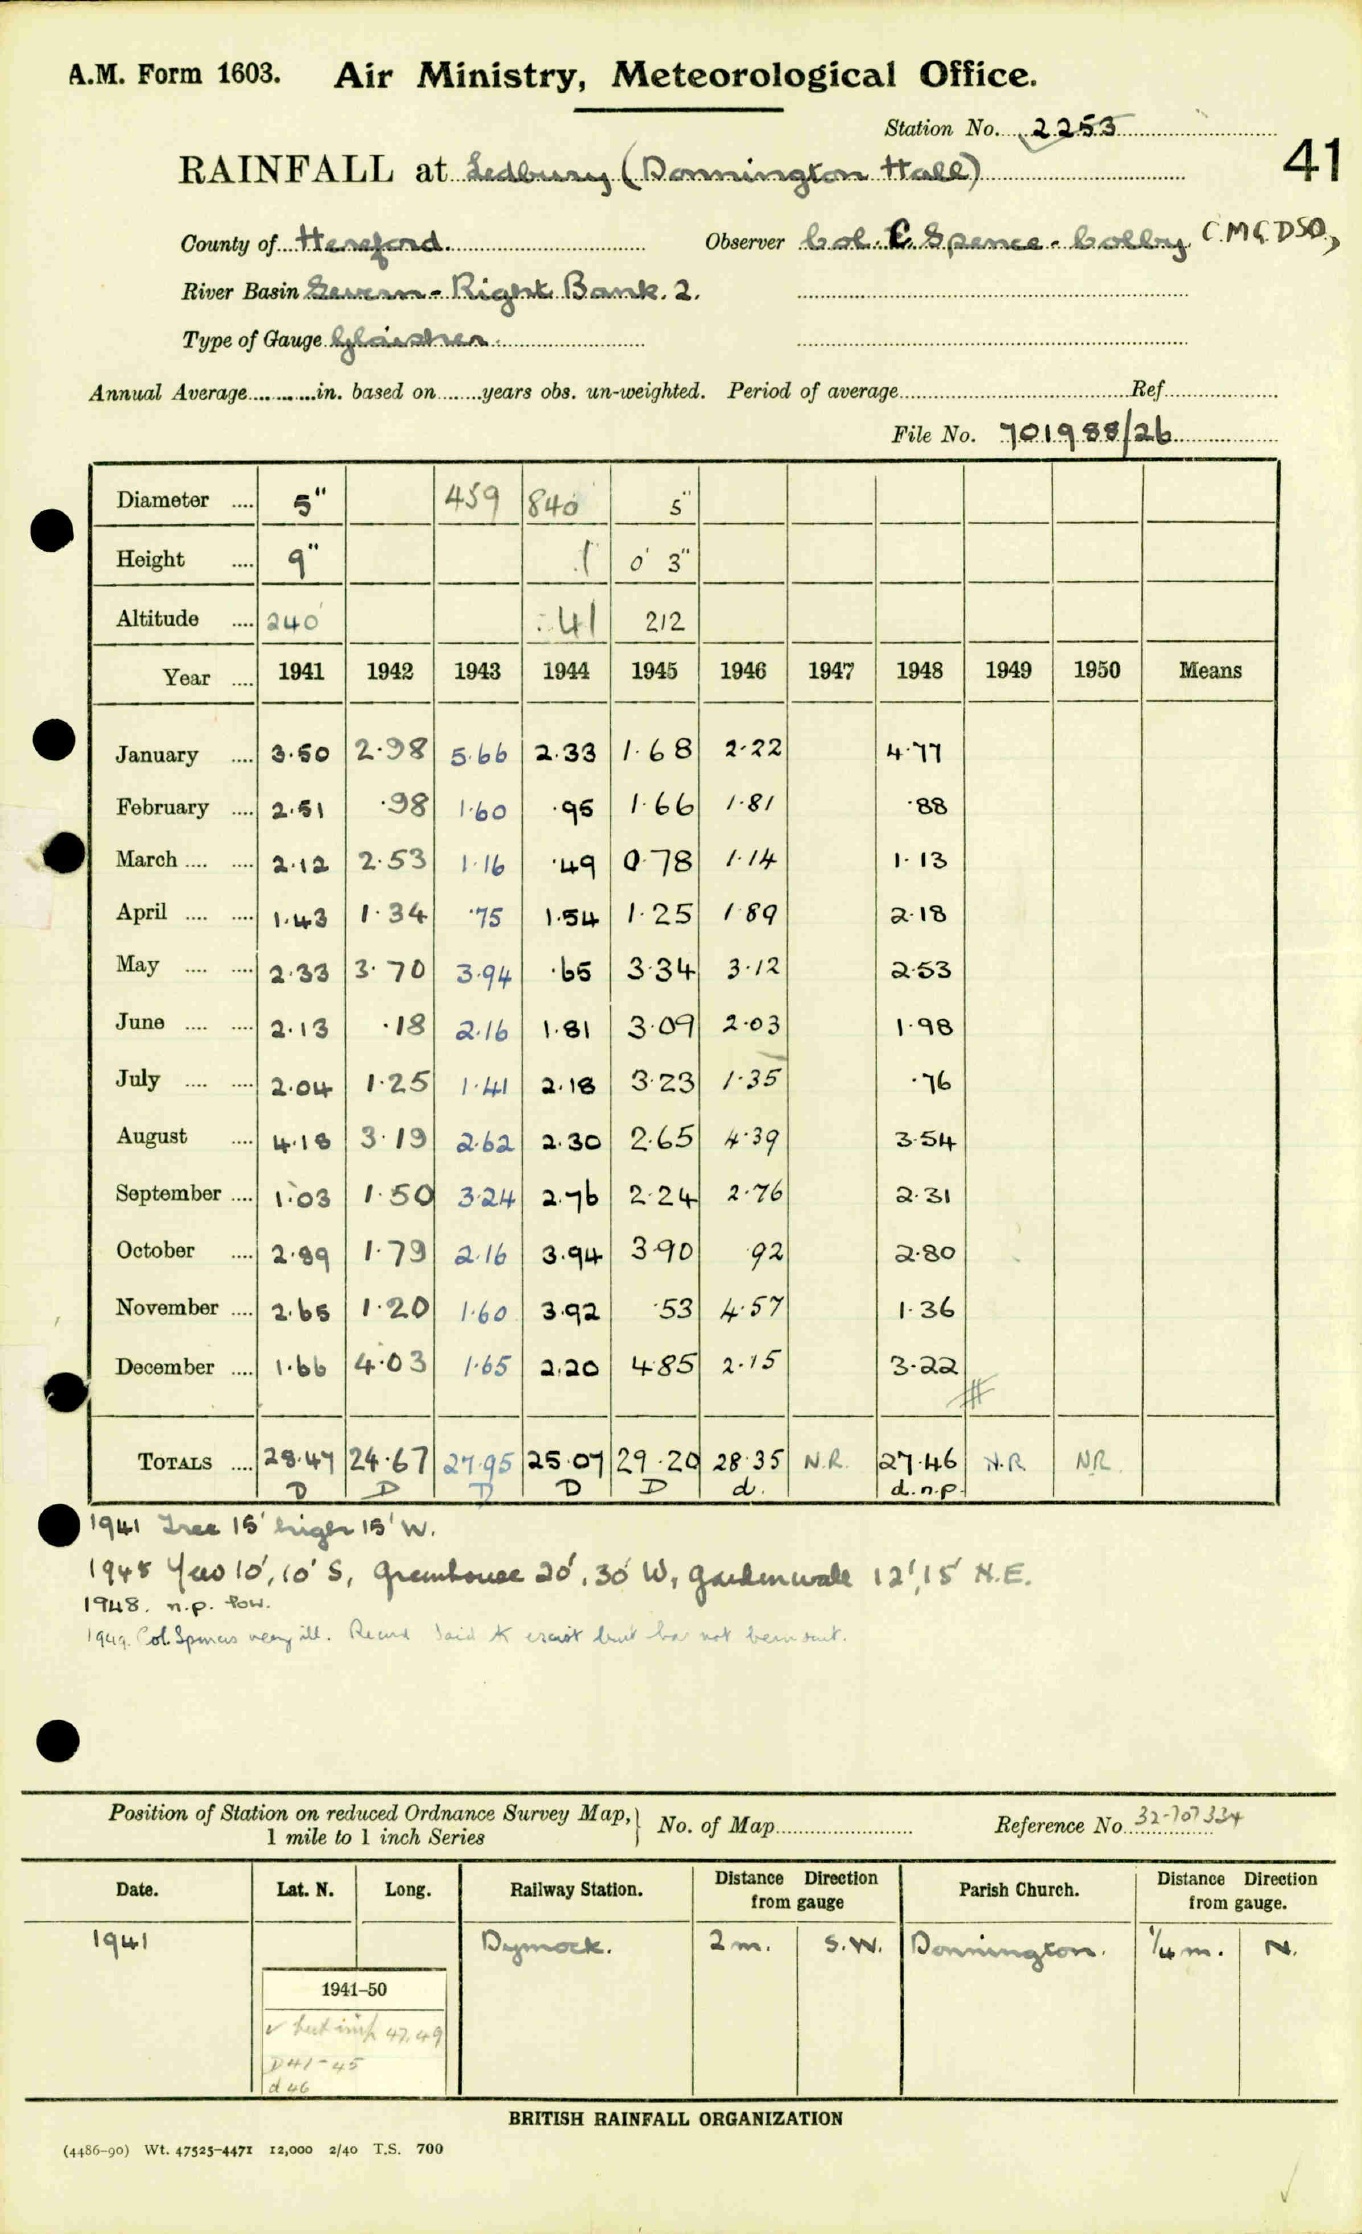 A.M. Form 1603. Air Ministry, Meteorological Office.
Station No. 2253
41
RAINFALL at Ledbury (Donnington Hall)
County of Hereford. Observer Col. C Spence-Colby C.M.G. D.S.O.,
River Basin Severn - Right Bank. 2.
Type of Gauge Glaisher.
Annual Average in. based on years obs. un-weighted. Period of average Ref
File No. 701988/26
Diameter 5" 459 840 5"
Height 9" 1 0' 3"
Altitude 240 41 212
Year 1941 1942 1943 1944 1945 1946 1947 1948 1949 1950 Means
January 3.50 2.98 5.66 2.33 1.68 2.22 4.77
February 2.51 .98 1.60 .95 1.66 1.81 .88
March 2.12 2.53 1.16 .49 0.78 1.14 1.13
April 1.43 1.34 .75 1.54 1.25 1.89 2.18
May 2.33 3.70 3.94 .65 3.34 3.12 2.53
June 2.13 .18 2.16 1.81 3.09 2.03 1.98
July 2.04 1.25 1.41 2.18 3.23 1.35 .76
August 4.18 3.19 2.62 2.30 2.65 4.39 3.54
September 1.03 1.50 3.24 2.76 2.24 2.76 2.31
October 2.89 1.79 2.16 3.94 3.90 .92 2.80
November 2.65 1.20 1.60 3.92 .53 4.57 1.36
December 1.66 4.03 1.65 2.20 4.85 2.15 3.22
TOTALS 28.47 24.67 27.95 25.07 29.20 28.35 N.R. 27.46 N.R. N.R.
D D D D D d. d.n.p.
1941 Tree 15' high 15' W.
1945 Yew 10', 10' S, Greenhouse 20', 30' W, gardenwall 12', 15' N.E.
1948. n.p. low.
1949. Col. Spences very ill. Record said to exist but has not been sent.
Position of Station on reduced Ordnance Survey Map, 1 mile to 1 inch Series
No. of Map Reference No. 32-707334
Date. Lat. N. Long. Railway Station. Distance Direction from gauge Parish Church. Distance Direction from gauge.
1941 Dymock. 2 m. S.W. Donnington. 1/4 m. N.
1941-50
47, 49
D 41-45
d 46
BRITISH RAINFALL ORGANIZATION
(4486-90) Wt. 47525-4471 12,000 2/40 T.S. 700